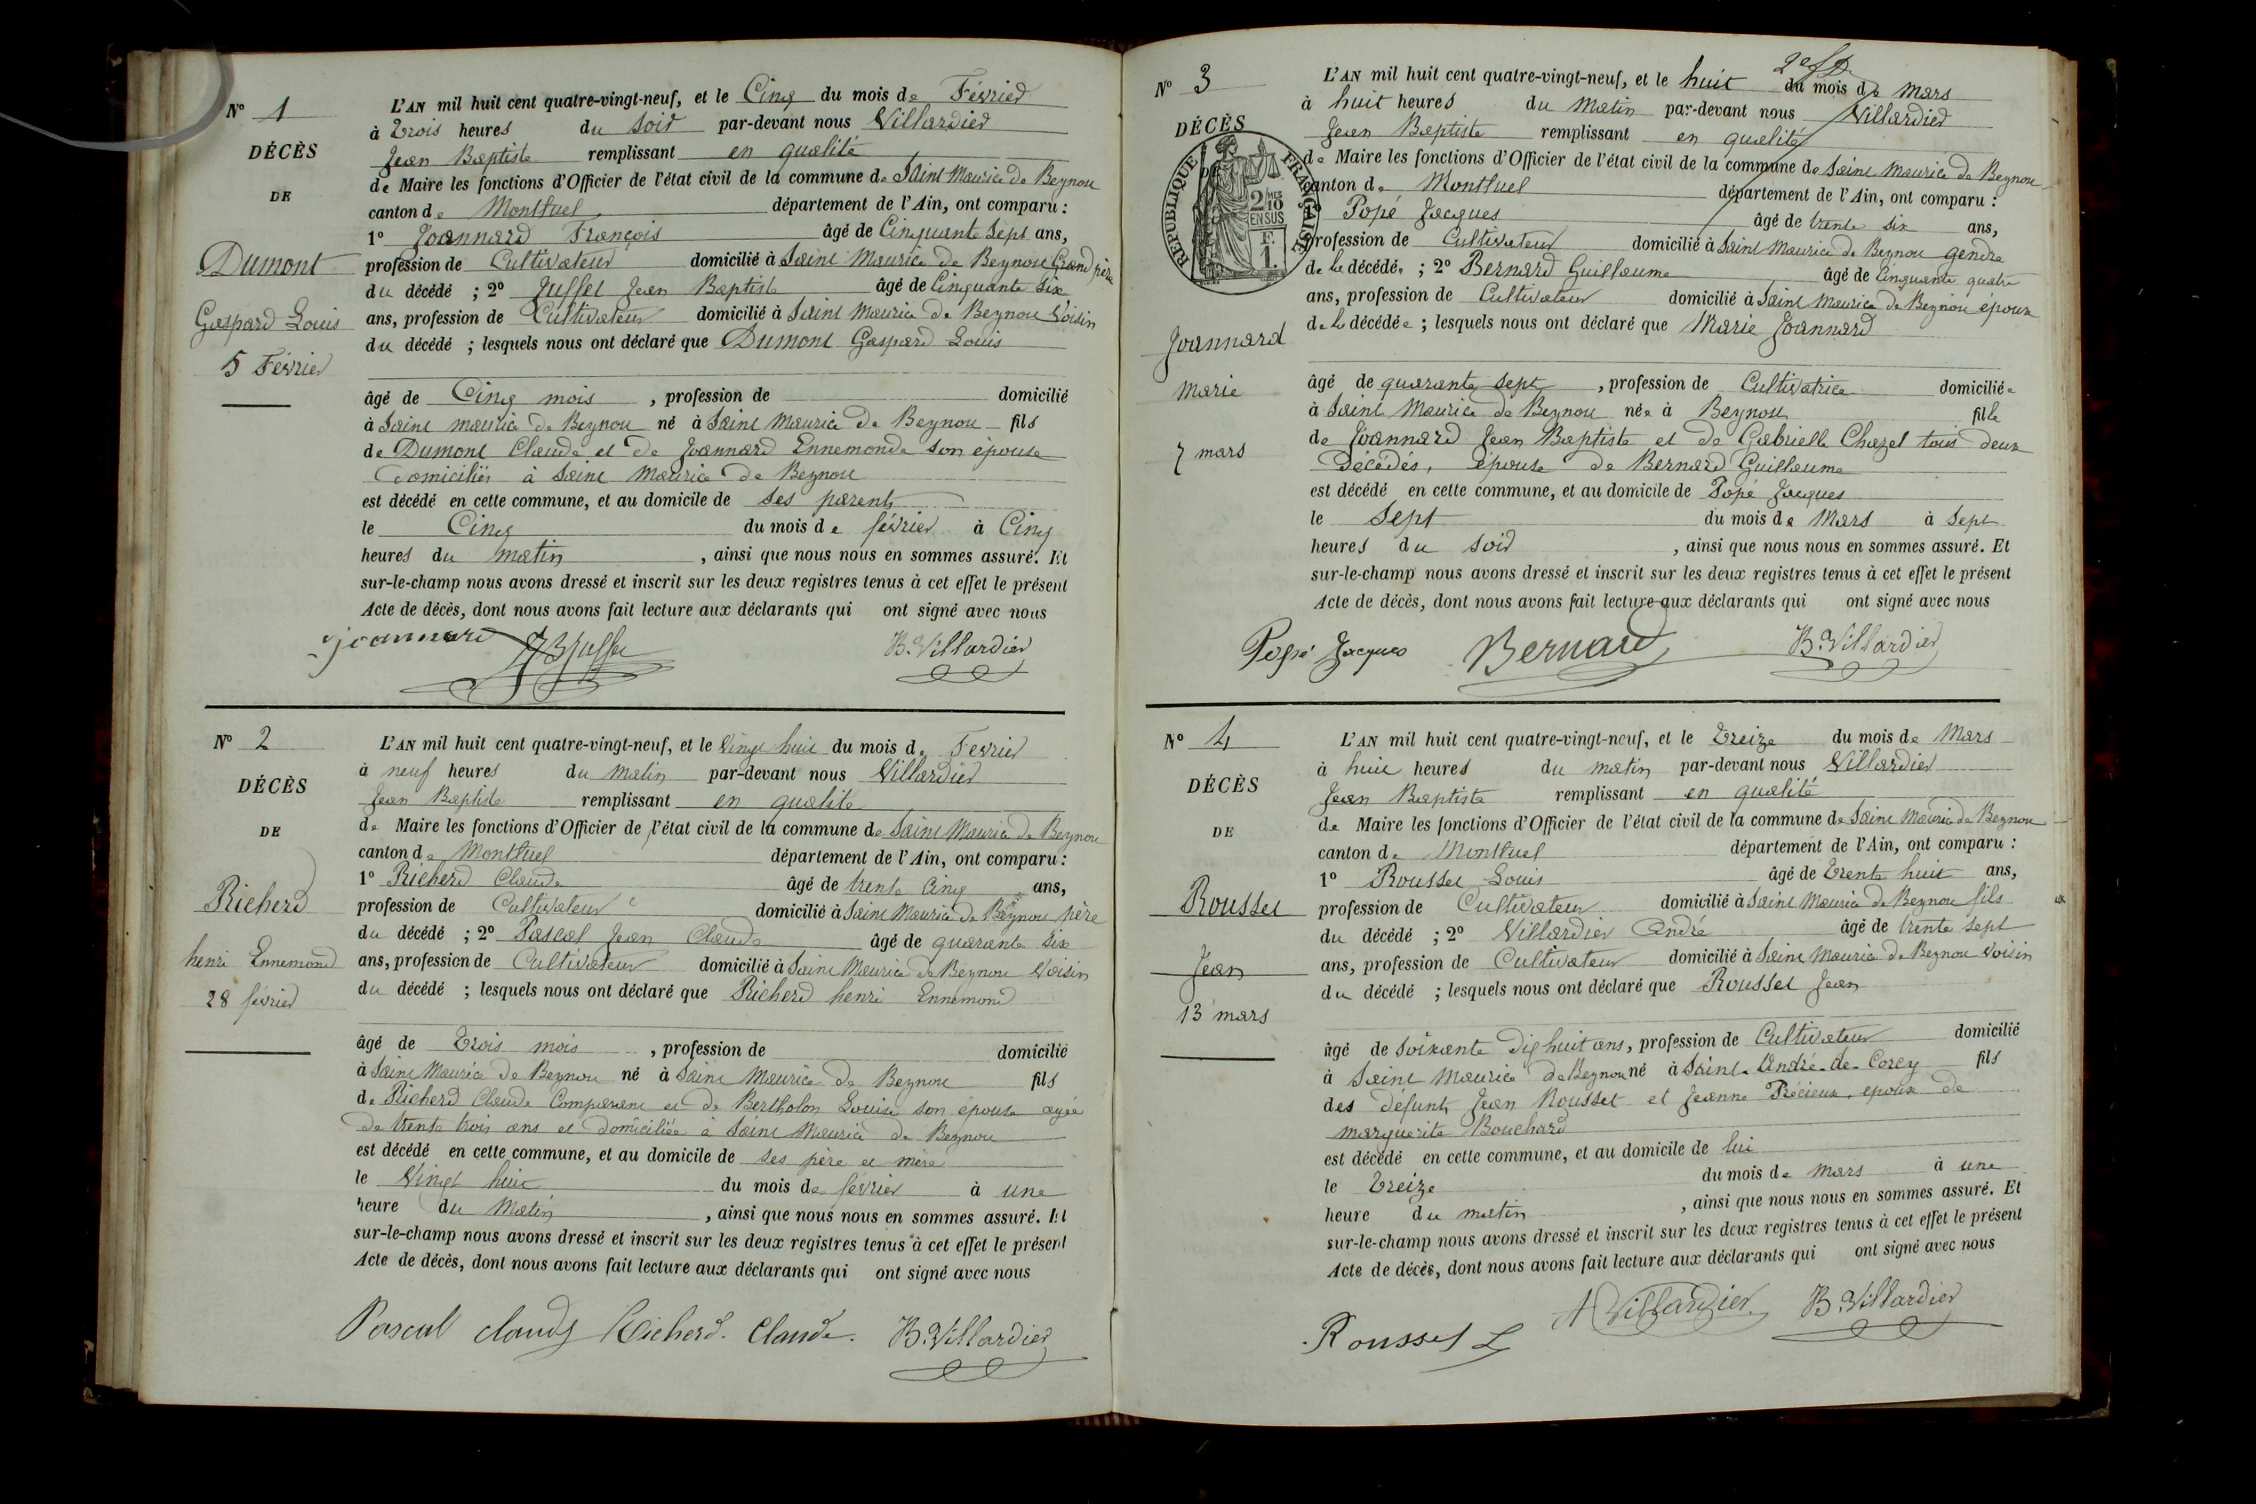 N° 1
DÉCÈS
DE
Dumont
Gaspard Louis
5 Février
L'AN mil huit cent quatre-vingt-neuf, et le Cinq du mois de Février
à Trois heures du Soir par-devant nous Villardier
Jean Baptiste remplissant en qualité
de Maire les fonctions d'Officier de l'état civil de la commune de Saint Maurice de Beynou
canton de Montluel département de l'Ain, ont comparu :
1° Joannard François âgé de Cinquante Sept ans,
profession de Cultivateur domicilié à Saint Maurice de Beynou Grand père
du décédé ; 2° Juffet Jean Baptiste âgé de Cinquante Six
ans, profession de Cultivateur domicilié à Saint Maurice de Beynou Voisin
du décédé ; lesquels nous ont déclaré que Dumont Gaspard Louis
âgé de Cinq mois , profession de domicilié
à Saint maurice de Beynou né à Saint Maurice de Beynou fils
de Dumont Claude et de Joannard Ennemonde son épouse
domiciliés à Saint Maurice de Beynou
est décédé en cette commune, et au domicile de ses parents
le Cinq du mois de février à Cinq
heures du matin , ainsi que nous nous en sommes assuré. Et
sur-le-champ nous avons dressé et inscrit sur les deux registres tenus à cet effet le présent
Acte de décès, dont nous avons fait lecture aux déclarants qui ont signé avec nous
joannard JBJuffet B. Villardier
N° 2
DÉCÈS
DE
Richerd
henri Ennemond
28 février
L'AN mil huit cent quatre-vingt-neuf, et le Vingt huit du mois de Fevrier
à neuf heures du matin par-devant nous Villardier
Jean Baptiste remplissant en qualité
de Maire les fonctions d'Officier de l'état civil de la commune de Saint Maurice de Beynou
canton de Montluel département de l'Ain, ont comparu :
1° Richerd Claude âgé de trente Cinq ans,
profession de Cultivateur domicilié à Saint Maurice de Beynou père
du décédé ; 2° Pascal Jean Claude âgé de quarante six
ans, profession de Cultivateur domicilié à Saint Maurice de Beynou Voisin
du décédé ; lesquels nous ont déclaré que Richerd henri Ennemond
âgé de Trois mois , profession de domicilié
à Saint Maurice de Beynou né à Saint Maurice de Beynou fils
de Richerd Claude Comparant et de Bertholon Louise son épouse agée
de trente trois ans et domiciliée à Saint Maurice de Beynou
est décédé en cette commune, et au domicile de ses père et mère
le Vingt huit du mois de février à une
heure du Matin , ainsi que nous nous en sommes assuré. Et
sur-le-champ nous avons dressé et inscrit sur les deux registres tenus à cet effet le présent
Acte de décès, dont nous avons fait lecture aux déclarants qui ont signé avec nous
Pascal claude Richerd. Claude. B. Villardier
N° 3
DÉCÈS
DE
RÉPUBLIQUE FRANÇAISE
2 MES
10
EN SUS
F.
1.
Joannard
Marie
7 mars
L'AN mil huit cent quatre-vingt-neuf, et le huit du mois de Mars
à huit heures du Matin par-devant nous Villardier
Jean Baptiste remplissant en qualité
de Maire les fonctions d'Officier de l'état civil de la commune de Saint Maurice de Beynou
canton de Montluel département de l'Ain, ont comparu :
1° Popé Jacques âgé de trente six ans,
profession de Cultivateur domicilié à Saint Maurice de Beynou gendre
de la décédée ; 2° Bernard Guillaume âgé de Cinquante quatre
ans, profession de Cultivateur domicilié à Saint Maurice de Beynou époux
de la décédée ; lesquels nous ont déclaré que Marie Joannard
âgé de quarante sept , profession de Cultivatrice domiciliée
à Saint Maurice de Beynou née à Beynou fille
de Joannard Jean Baptiste et de Gabrielle Chazel tous deux
Décédés, épouse de Bernard Guillaume
est décédé en cette commune, et au domicile de Popé Jacques
le Sept du mois de Mars à sept
heures du soir , ainsi que nous nous en sommes assuré. Et
sur-le-champ nous avons dressé et inscrit sur les deux registres tenus à cet effet le présent
Acte de décès, dont nous avons fait lecture aux déclarants qui ont signé avec nous
Popé Jacques Bernard B. Villardier
N° 4
DÉCÈS
DE
Rousset
Jean
13 mars
L'AN mil huit cent quatre-vingt-neuf, et le Treize du mois de Mars
à huit heures du matin par-devant nous Villardier
Jean Baptiste remplissant en qualité
de Maire les fonctions d'Officier de l'état civil de la commune de Saint Maurice de Beynou
canton de Montluel département de l'Ain, ont comparu :
1° Rousset Louis âgé de Trente huit ans,
profession de Cultivateur domicilié à Saint Maurice de Beynou fils
du décédé ; 2° Villardier André âgé de trente sept
ans, profession de Cultivateur domicilié à Saint Maurice de Beynou Voisin
du décédé ; lesquels nous ont déclaré que Rousset Jean
âgé de Soixante Dix huit ans, profession de Cultivateur domicilié
à Saint Maurice de Beynou né à Saint-André-de-Corcy fils
des défunts Jean Rousset et Jeanne Précieux, epoux de
marguerite Bouchard
est décédé en cette commune, et au domicile de lui
le Treize du mois de mars à une
heure du matin , ainsi que nous nous en sommes assuré. Et
sur-le-champ nous avons dressé et inscrit sur les deux registres tenus à cet effet le présent
Acte de décès, dont nous avons fait lecture aux déclarants qui ont signé avec nous
Rousset L A Villardier B. Villardier